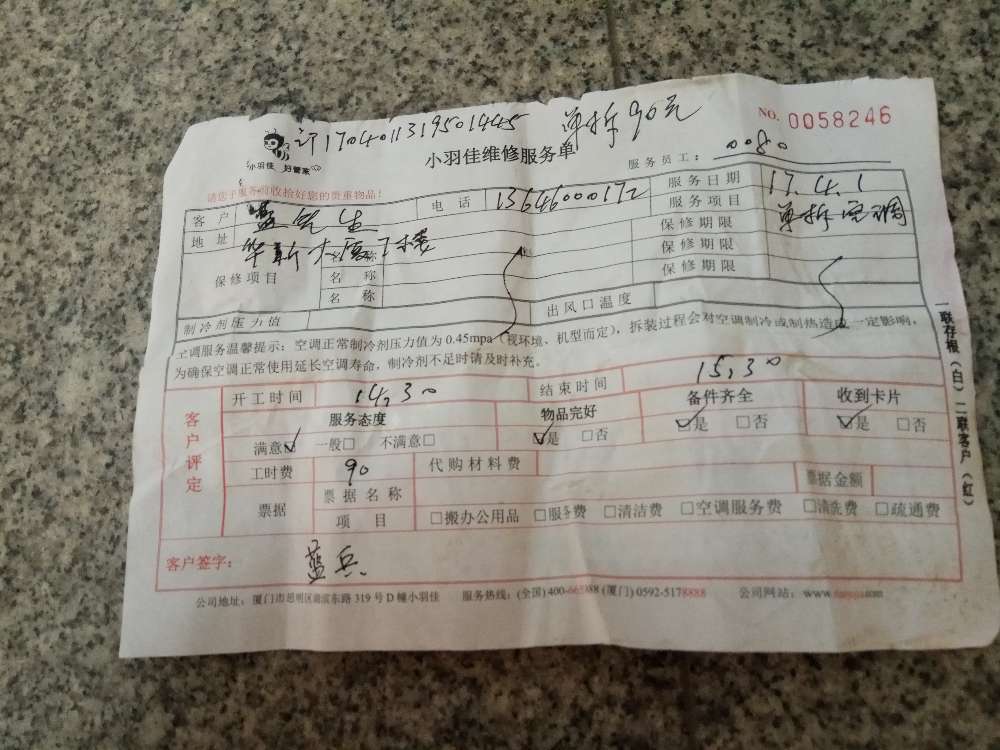 订1704011319501445 单拆90元
NO. 0058246
小羽佳 好管家
小羽佳维修服务单
服务员工: 0080
请您于服务前收拾好您的贵重物品!
客户 蓝先生 电话 13646000172 服务日期 17.4.1
地址 华新大厦 楼 服务项目 单拆空调
保修项目 名称 保修期限
名称 保修期限
名称 保修期限
制冷剂压力值 出风口温度
空调服务温馨提示:空调正常制冷剂压力值为0.45mpa(视环境、机型而定),拆装过程会对空调制冷或制热造成一定影响,
为确保空调正常使用延长空调寿命,制冷剂不足时请及时补充。
客户评定
开工时间 14,30 结束时间 15,30
服务态度 物品完好 备件齐全 收到卡片
满意☑ 一般□ 不满意□ ☑是 □否 ☑是 □否 ☑是 □否
工时费 90 代购材料费
票据 票据名称 票据金额
项目 □搬办公用品 □服务费 □清洁费 □空调服务费 □清洗费 □疏通费
客户签字: 蓝兵
公司地址:厦门市思明区 东路319号D幢小羽佳 服务热线:(全国)400- (厦门)0592-5178888 公司网站:www.
一联存根(白) 二联客户(红)